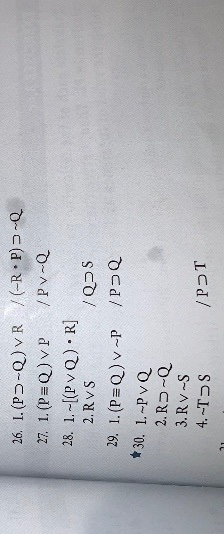 26. 1. (P ⊃ ~Q) ∨ R / (~R • P) ⊃ ~Q
27. 1. (P ≡ Q) ∨ P / P ∨ ~Q
28. 1. ~[(P ∨ Q) • R]
2. R ∨ S / Q ⊃ S
29. 1. (P ≡ Q) ∨ ~P / P ⊃ Q
★30. 1. ~P ∨ Q
2. R ⊃ ~Q
3. R ∨ ~S
4. ~T ⊃ S / P ⊃ T